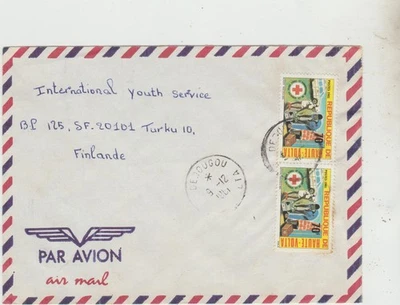 International Youth Service
BP 125, SF. 20101 Turku 10,
Finlande
DEDOUGOU
9-12
PAR AVION
air mail
REPUBLIQUE DE
HAUTE-VOLTA
REPUBLIQUE DE
HAUTE-VOLTA